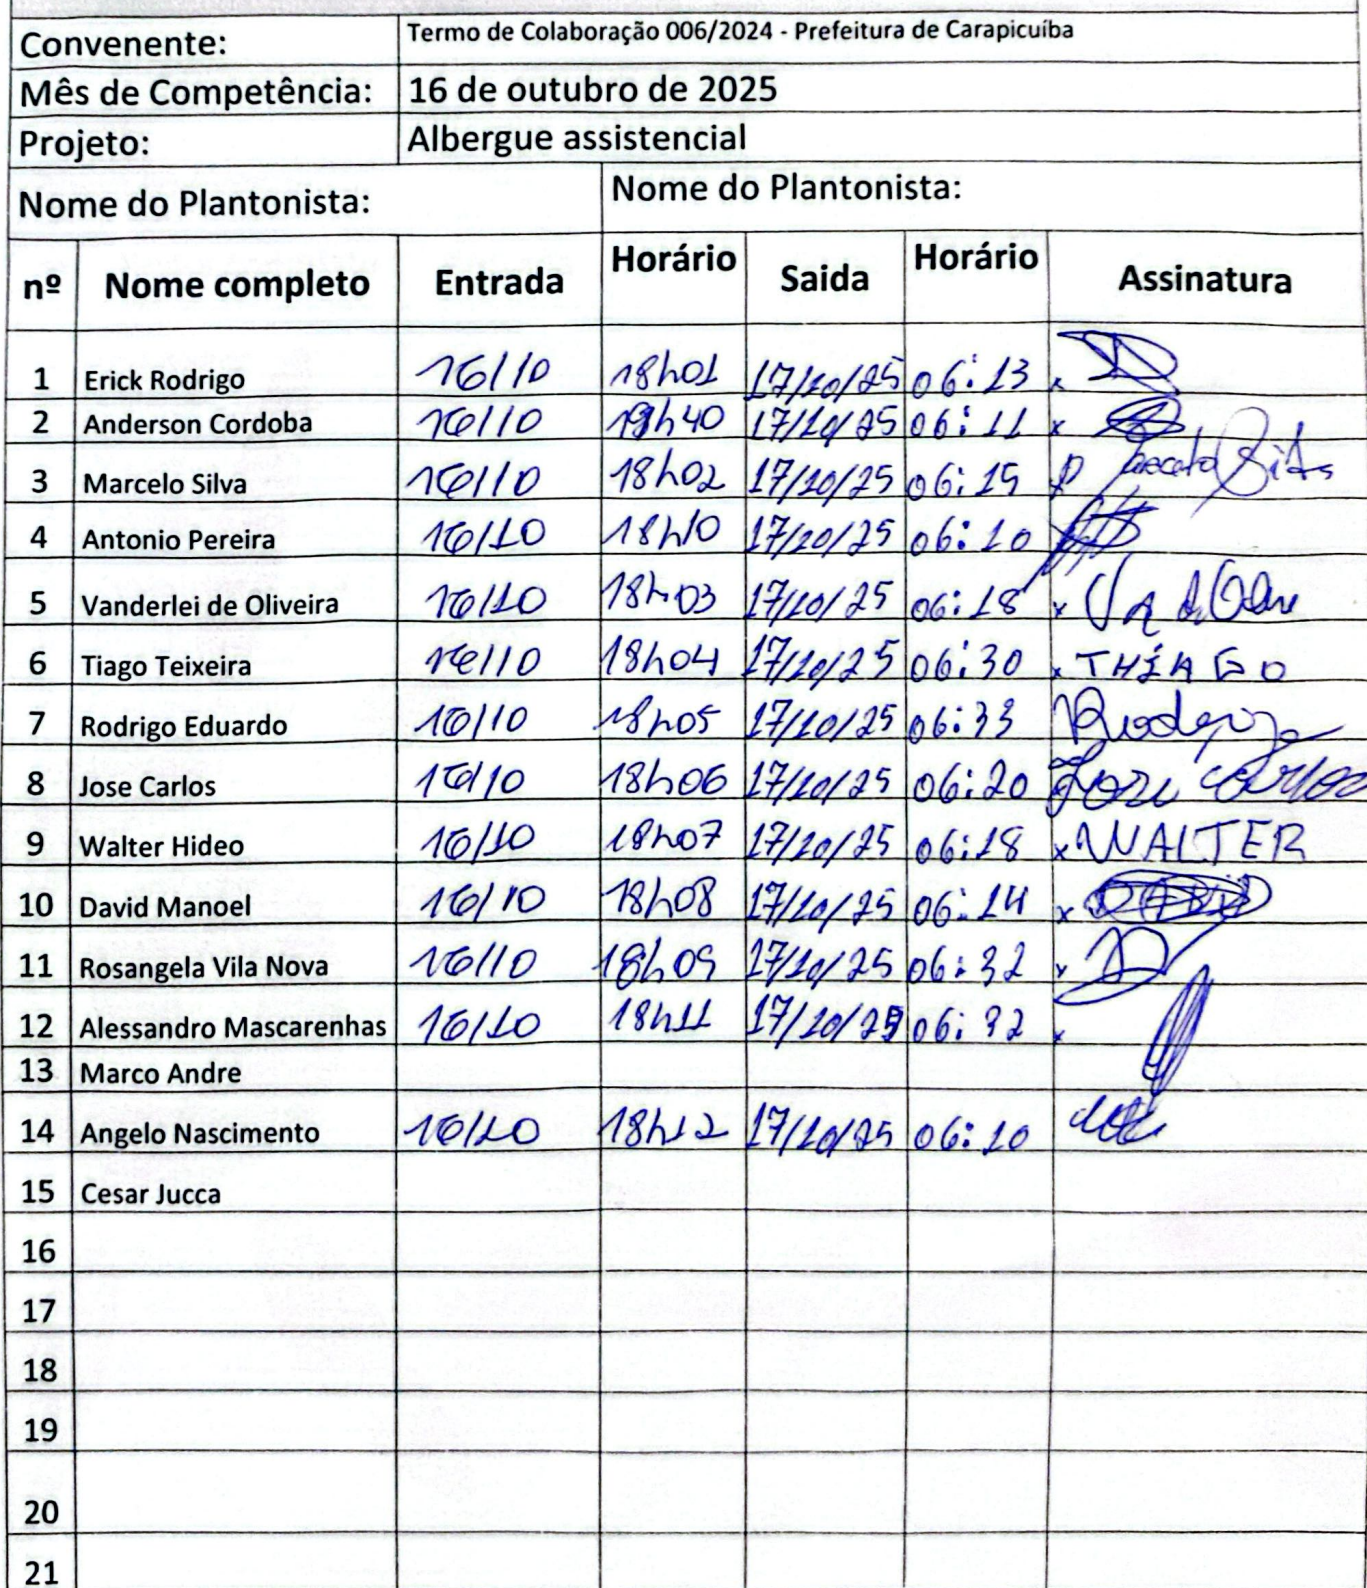 Convenente: Termo de Colaboração 006/2024 - Prefeitura de Carapicuíba
Mês de Competência: 16 de outubro de 2025
Projeto: Albergue assistencial
Nome do Plantonista: Nome do Plantonista:
nº Nome completo Entrada Horário Saida Horário Assinatura
1 Erick Rodrigo 16/10 18h01 17/10/25 06:13 x
2 Anderson Cordoba 16/10 19h40 17/10/25 06:11 x
3 Marcelo Silva 16/10 18h02 17/10/25 06:15
4 Antonio Pereira 16/10 18h10 17/10/25 06:10
5 Vanderlei de Oliveira 16/10 18h03 17/10/25 06:18 x
6 Tiago Teixeira 16/10 18h04 17/10/25 06:30 x THIAGO
7 Rodrigo Eduardo 16/10 18h05 17/10/25 06:33 Rodrigo
8 Jose Carlos 16/10 18h06 17/10/25 06:20 Jose Carlos
9 Walter Hideo 16/10 18h07 17/10/25 06:18 x WALTER
10 David Manoel 16/10 18h08 17/10/25 06:14 x
11 Rosangela Vila Nova 16/10 18h09 17/10/25 06:32 x
12 Alessandro Mascarenhas 16/10 18h11 17/10/25 06:32 x
13 Marco Andre
14 Angelo Nascimento 16/10 18h12 17/10/25 06:10
15 Cesar Jucca
16
17
18
19
20
21